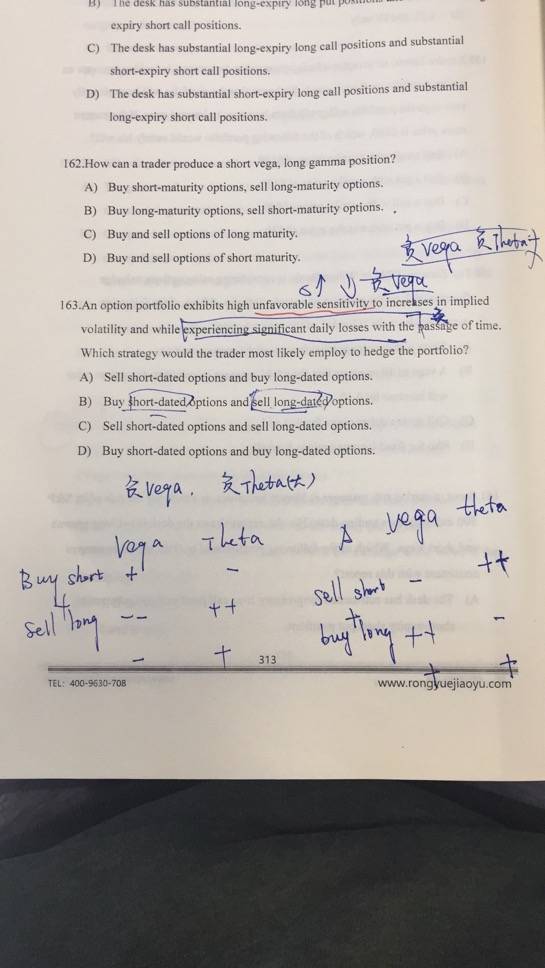 B) The desk has substantial long-expiry long put
expiry short call positions.
C) The desk has substantial long-expiry long call positions and substantial
short-expiry short call positions.
D) The desk has substantial short-expiry long call positions and substantial
long-expiry short call positions.
162.How can a trader produce a short vega, long gamma position?
A) Buy short-maturity options, sell long-maturity options.
B) Buy long-maturity options, sell short-maturity options.
C) Buy and sell options of long maturity.
D) Buy and sell options of short maturity.
负vega 负Theta大
S↑ ↓ 负vega
163.An option portfolio exhibits high unfavorable sensitivity to increases in implied
volatility and while experiencing significant daily losses with the passage of time.
负
Which strategy would the trader most likely employ to hedge the portfolio?
A) Sell short-dated options and buy long-dated options.
B) Buy short-dated options and sell long-dated options.
C) Sell short-dated options and sell long-dated options.
D) Buy short-dated options and buy long-dated options.
负vega. 负Theta(大)
Vega Theta
Buy short + -
+
Sell long -- ++
- +
A vega theta
sell short - ++
+
buy long ++ -
+ +
313
TEL: 400-9630-708
www.rongyuejiaoyu.com